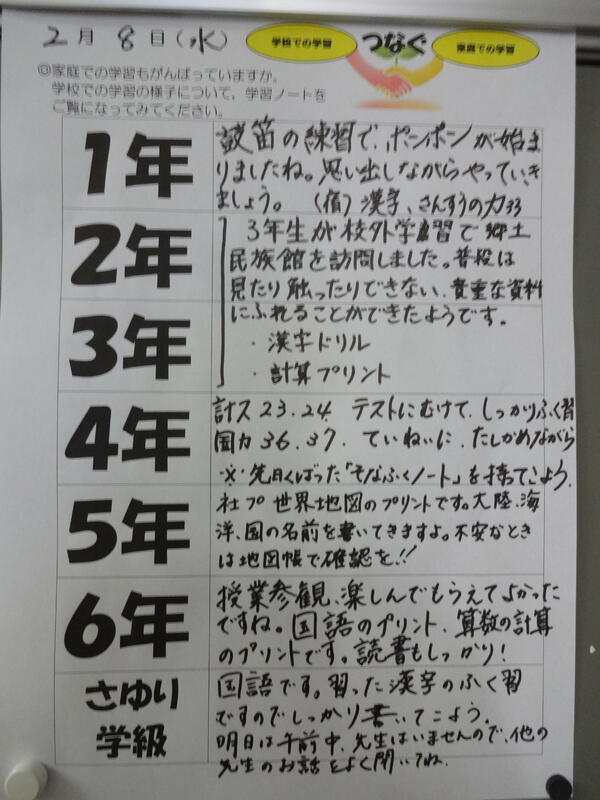 2月 8日(水)
学校での学習
つなぐ
家庭での学習
◎家庭での学習もがんばっていますか。
学校での学習の様子について、学習ノートを
ご覧になってみてください。
1年
鼓笛の練習で、ポンポンが始ま
りましたね。思い出しながらやっていき
ましょう。 (宿)漢字、さんすうの力33
2年
3年
3年生が校外学習で郷土
民族館を訪問しました。普段は
見たり触ったりできない、貴重な資料
にふれることができたようです。
・漢字ドリル
・計算プリント
4年
計ス23.24 テストにむけて、しっかりふく習
国力36.37. ていねいに、たしかめながら
※先日くばった「そなふくノート」を持ってこよう。
5年
社プ 世界地図のプリントです。大陸、海
洋、国の名前を書いてきますよ。不安なとき
は地図帳で確認を!!
6年
授業参観、楽しんでもらえてよかった
ですね。国語のプリント、算数の計算
のプリントです。読書もしっかり!
さゆり
学級
国語です。習った漢字のふく習
ですのでしっかり書いてこよう。
明日は午前中、先生はいませんので、他の
先生のお話をよく聞いてね。